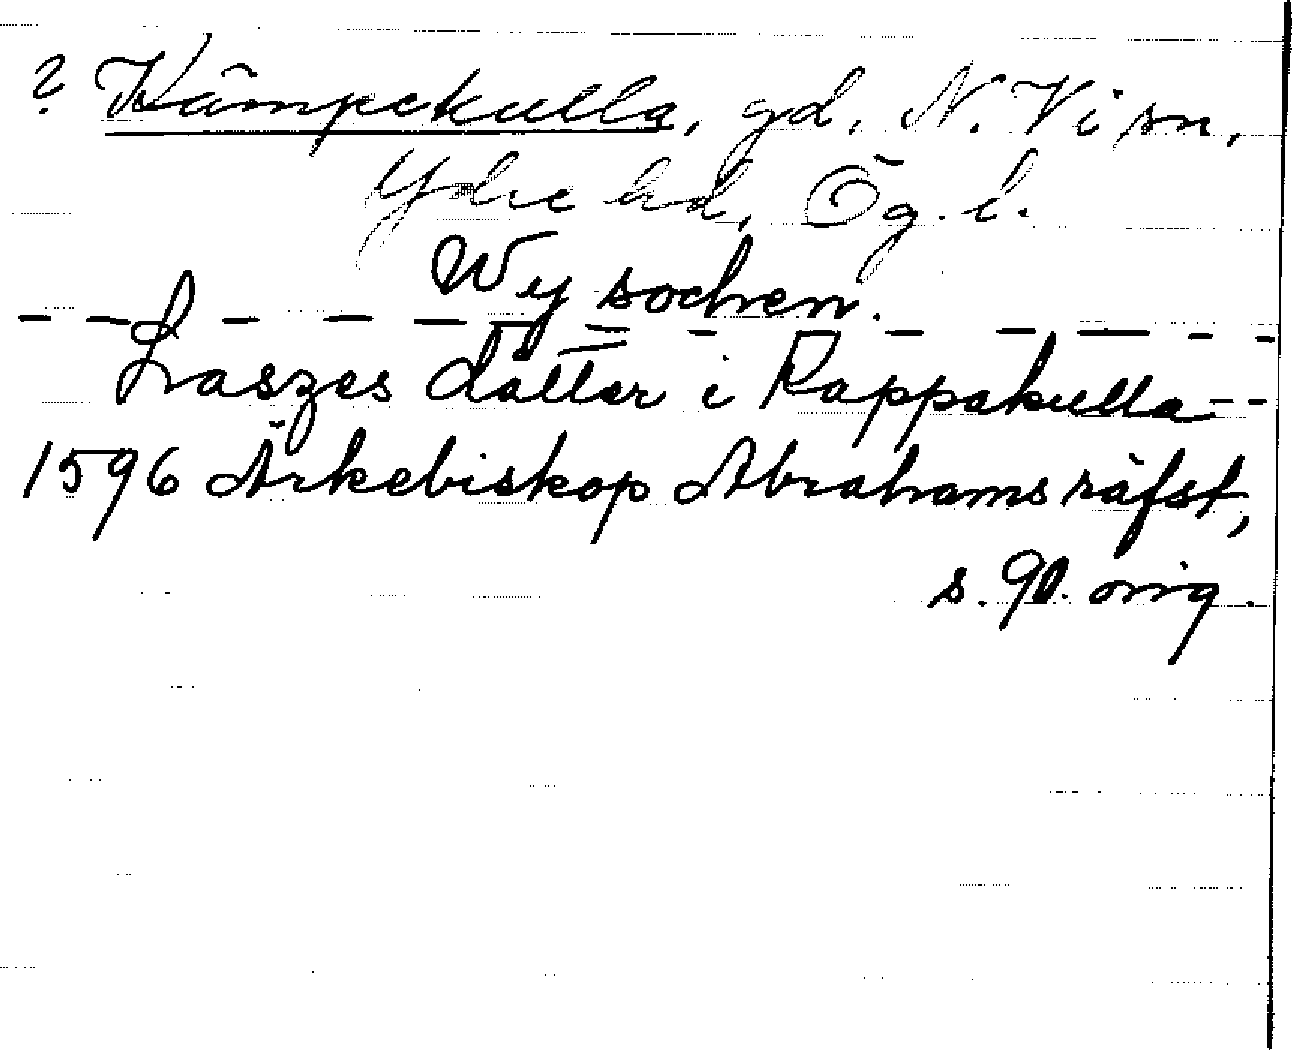 ? Kämpekulla, gd, N. Vi sn,
Ydre hd, Ög. l.
Wy sochen.
— — — — — — — — — — —
Laszes dotter i Kappakulla - -
1596 Ärkebiskop Abrahams räfst,
s. 90. orig.